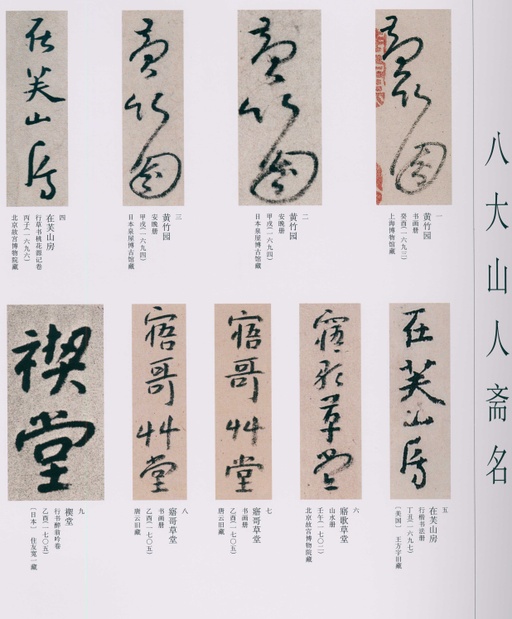 八大山人斋名
黄竹园
一
黄竹园
书画册
癸酉(一六九三)
上海博物馆藏
黄竹园
二
黄竹园
安晚册
甲戌(一六九四)
日本泉屋博古馆藏
黄竹园
三
黄竹园
安晚册
甲戌(一六九四)
日本泉屋博古馆藏
在芙山房
四
在芙山房
行草书桃花源记卷
丙子(一六九六)
北京故宫博物院藏
在芙山房
五
在芙山房
行楷书法册
丁丑(一六九七)
〔美国〕 王方宇旧藏
寤歌草堂
六
寤歌草堂
山水册
壬午(一七〇二)
北京故宫博物院藏
寤哥艸堂
七
寤哥草堂
书画册
乙酉(一七〇五)
唐云旧藏
寤哥艸堂
八
寤哥草堂
书画册
乙酉(一七〇五)
唐云旧藏
禊堂
九
禊堂
行书醉翁吟卷
乙酉(一七〇五)
〔日本〕 住友宽一藏